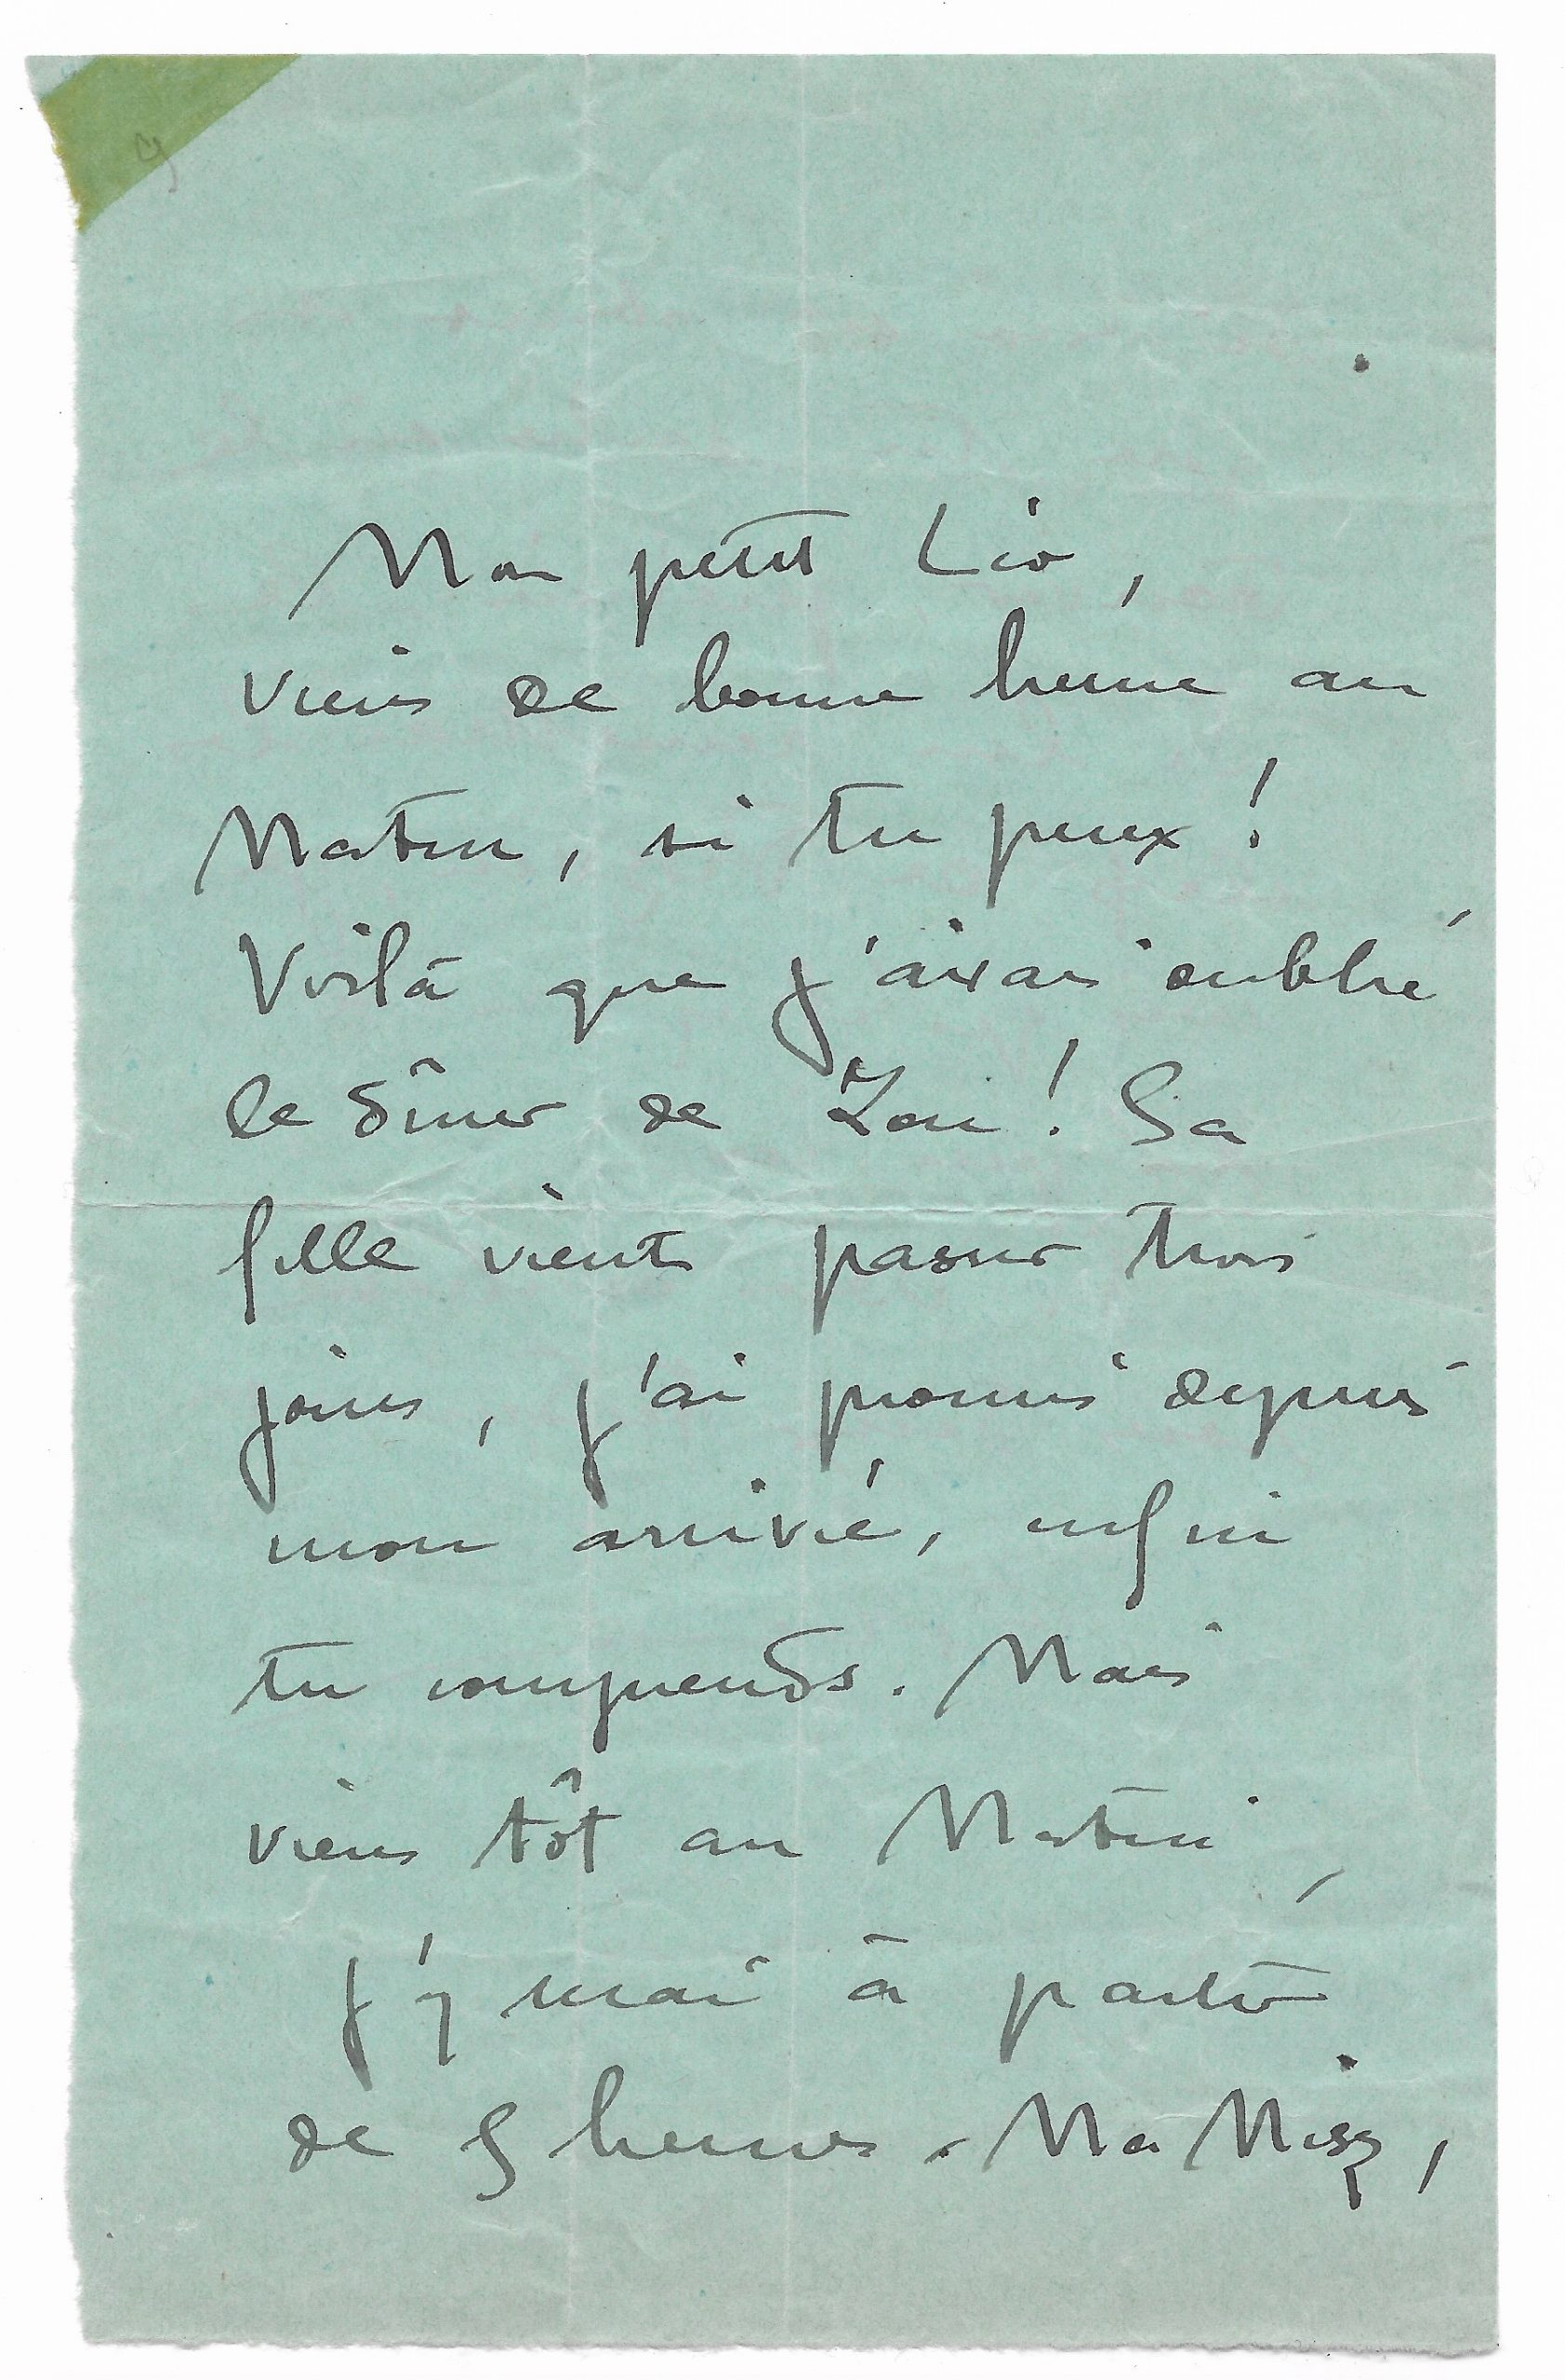 Mon petit Léo,
viens de bonne heure au
Matin, si tu peux !
Voilà que j'avais oublié
le dîner de Zou ! Sa
fille vient passer trois
jours, j'ai promis depuis
mon arrivée, enfin
tu comprends. Mais
viens tôt au Matin,
j'y serai à partir
de 9 heures. Ma Missz,